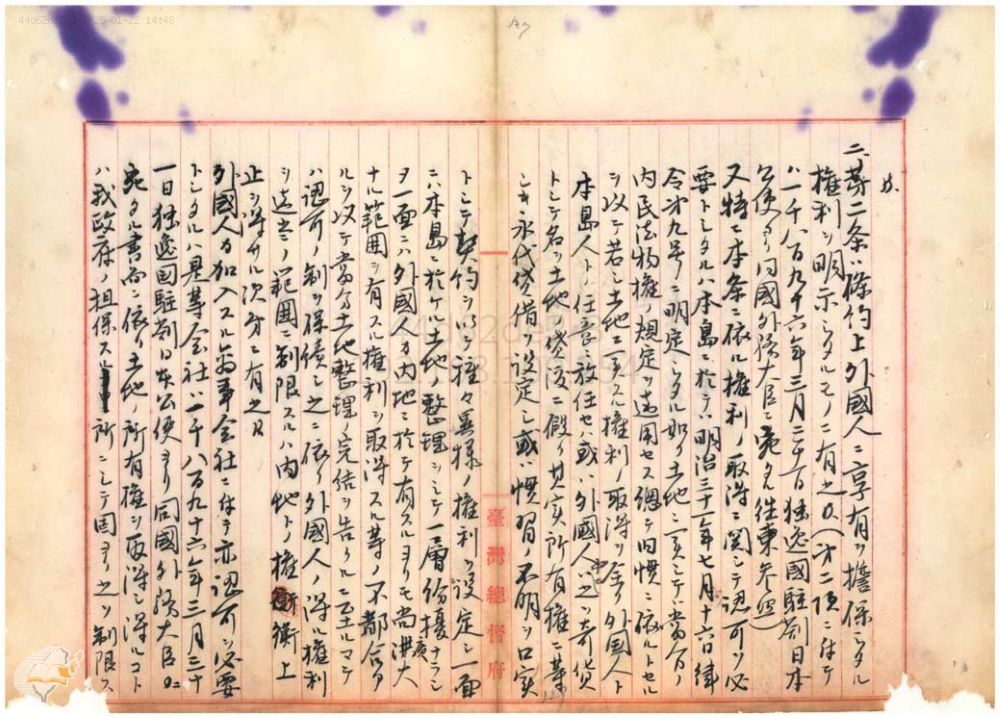 二、第二条ハ條約上外國人ニ享有ヲ擔保シタル
權利ヲ明示シタルモノニ有之候(第二項ニ付テ
ハ一千八百九十六年三月三十一日独逸國駐劄日本
公使ヨリ同國外務大臣ニ宛タル往柬参照)
又特ニ本条ニ依ル權利ノ取得ニ関シテ認可ヲ必
要トシタルハ本島ニ於テハ明治三十一年七月十六日律
令第九号ニ明定シタル如ク土地ニ関シテハ當分ノ
内民法物權ノ規定ヲ適用セス總テ旧慣ニ依ルトセル
ヲ以テ若シ土地ニ関スル權利ノ取得ヲ全ク外國人ト
本島人トノ任意ニ放任セハ或ハ外國人ハ之ヲ奇貨
トシテ名ヲ土地ノ貸渡ニ假リ其実所有權ニ等
シキ永代貸借ヲ設定シ或ハ慣習ノ不明ヲ口実
トシテ契約ヲ以テ種々異様ノ權利ヲ設定シ一面
ニハ本島ニ於ケル土地ノ整理ヲシテ一層紛擾ナラシ
メ一面ニハ外國人カ内地ニ於テ有スルヨリモ尚広大
ナル範囲ヲ有スル權利ヲ取得スル等ノ不都合ア
ルヲ以テ當分土地整理ノ完結ヲ告クルニ至ルマテ
ハ認可ノ制ヲ保續シ之ニ依リ外國人ノ得ル權利
ヲ適当ノ範囲ニ制限スルハ内地トノ權衡上
止ヲ得サル次第ニ有之候
外國人カ加入スル商事会社ニ付テ亦認可ヲ必要
トシタルハ是等会社ハ一千八百九十六年三月三十
一日独逸国駐劄日本公使ヨリ同國外務大臣ニ
宛タル書面ニ依リ土地ノ所有權ヲ取得シ得ルコト
ハ我政府ノ担保スル所ニシテ固ヨリ之ヲ制限ス
臺灣總督府